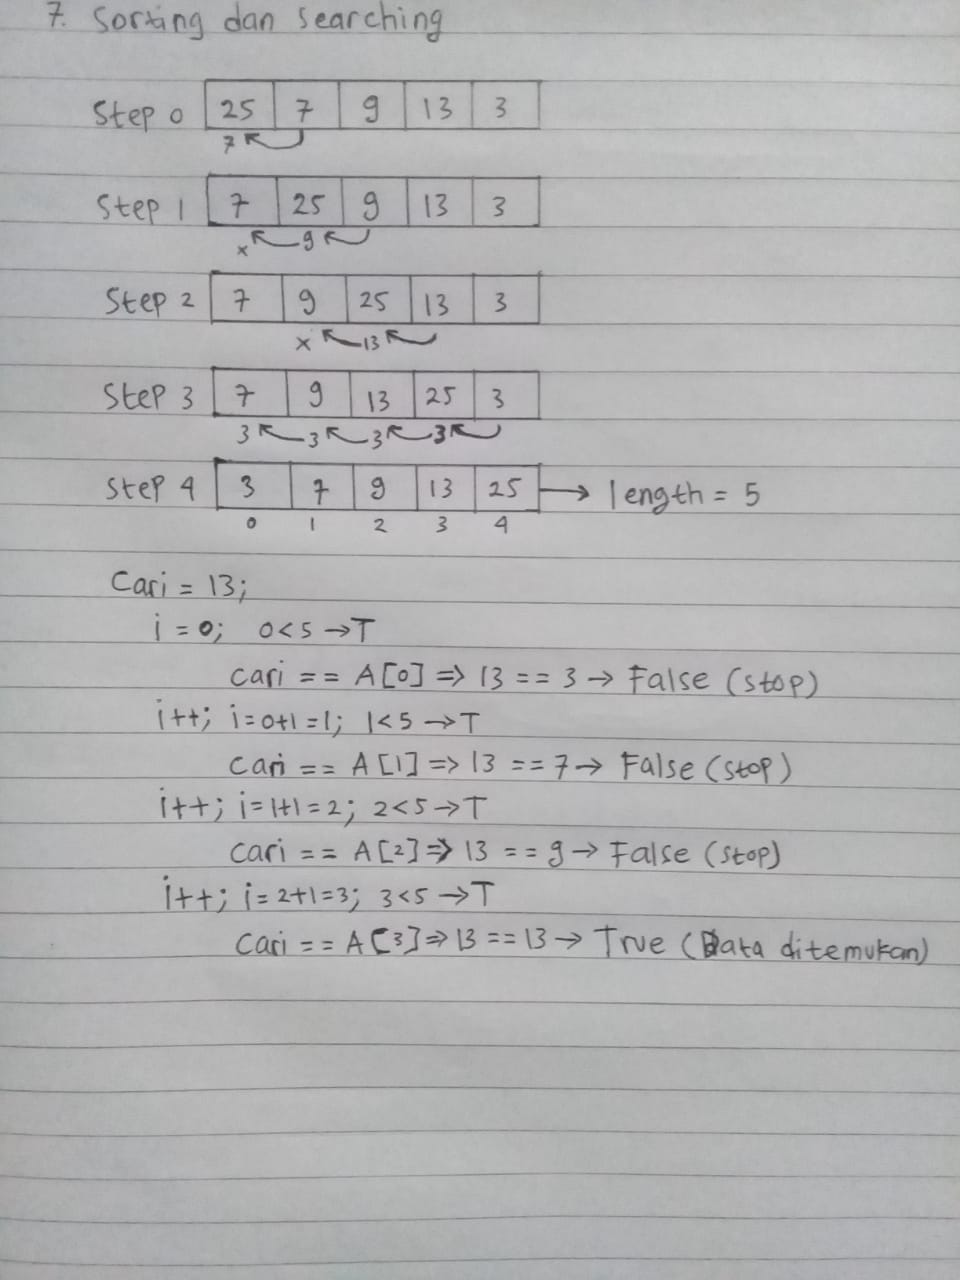 7. Sorting dan searching
Step 0 25 7 9 13 3
7
Step 1 7 25 9 13 3
x 9
Step 2 7 9 25 13 3
x 13
Step 3 7 9 13 25 3
3 3 3 3
Step 4 3 7 9 13 25 → length = 5
0 1 2 3 4
Cari = 13;
i = 0; 0<5 → T
cari == A[0] => 13 == 3 → False (stop)
i++; i=0+1=1; 1<5 → T
cari == A[1] => 13 == 7 → False (stop)
i++; i=1+1=2; 2<5 → T
cari == A[2] => 13 == 9 → False (stop)
i++; i=2+1=3; 3<5 → T
cari == A[3] => 13 == 13 → True (Data ditemukan)